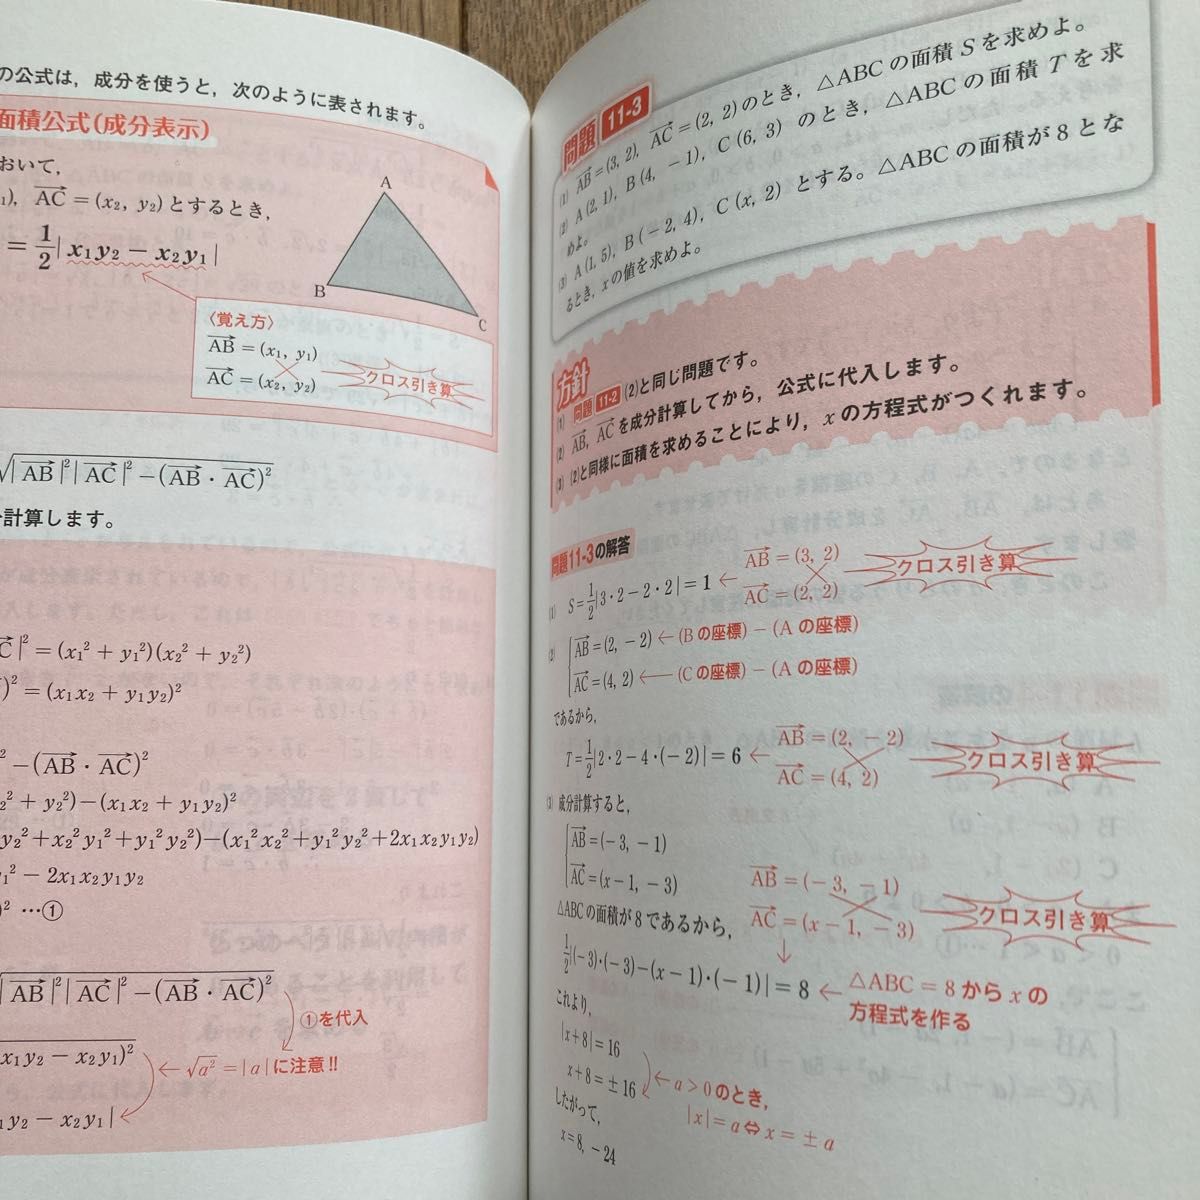 の公式は，成分を使うと，次のように表されます。
面積公式(成分表示)
おいて，
₁), AC=(x₂, y₂)とするとき，
=1/2|x₁y₂−x₂y₁|
A
B
C
〈覚え方〉
AB=(x₁, y₁)
AC=(x₂, y₂)
クロス引き算
√|AB|²|AC|²−(AB・AC)²
計算します。
C|²=(x₁²+y₁²)(x₂²+y₂²)
)²=(x₁x₂+y₁y₂)²
−(AB・AC)²
₂²+y₂²)−(x₁x₂+y₁y₂)²
y₂²+x₂²y₁²+y₁²y₂²)−(x₁²x₂²+y₁²y₂²+2x₁x₂y₁y₂)
y₁²−2x₁x₂y₁y₂
)² …①
|AB|²|AC|²−(AB・AC)²
①を代入
x₁y₂−x₂y₁)²
←√a²=|a|に注意!!
y₂−x₂y₁|
問題 11-3
(1) AB=(3, 2), AC=(2, 2)のとき，△ABCの面積Sを求めよ。
(2) A(2, 1), B(4, −1), C(6, 3) のとき，△ABCの面積Tを求
めよ。
(3) A(1, 5), B(−2, 4), C(x, 2) とする。△ABCの面積が8とな
るとき，xの値を求めよ。
方針
(1) 問題 11-2 (2)と同じ問題です。
(2) AB, ACを成分計算してから，公式に代入します。
(3) (2)と同様に面積を求めることにより，xの方程式がつくれます。
問題11-3の解答
(1) S=1/2|3・2−2・2|=1 ← AB=(3, 2)
AC=(2, 2)
クロス引き算
(2) AB=(2, −2) ←(Bの座標)−(Aの座標)
AC=(4, 2) ←(Cの座標)−(Aの座標)
であるから，
T=1/2|2・2−4・(−2)|=6 ← AB=(2, −2)
AC=(4, 2)
クロス引き算
(3) 成分計算すると，
AB=(−3, −1)
AC=(x−1, −3)
AB=(−3, −1)
AC=(x−1, −3)
クロス引き算
△ABCの面積が8であるから，
1/2|(−3)・(−3)−(x−1)・(−1)|=8 ← △ABC=8からxの
方程式を作る
これより，
|x+8|=16
x+8=±16
←a>0のとき，
|x|=a⇔x=±a
したがって，
x=8, −24